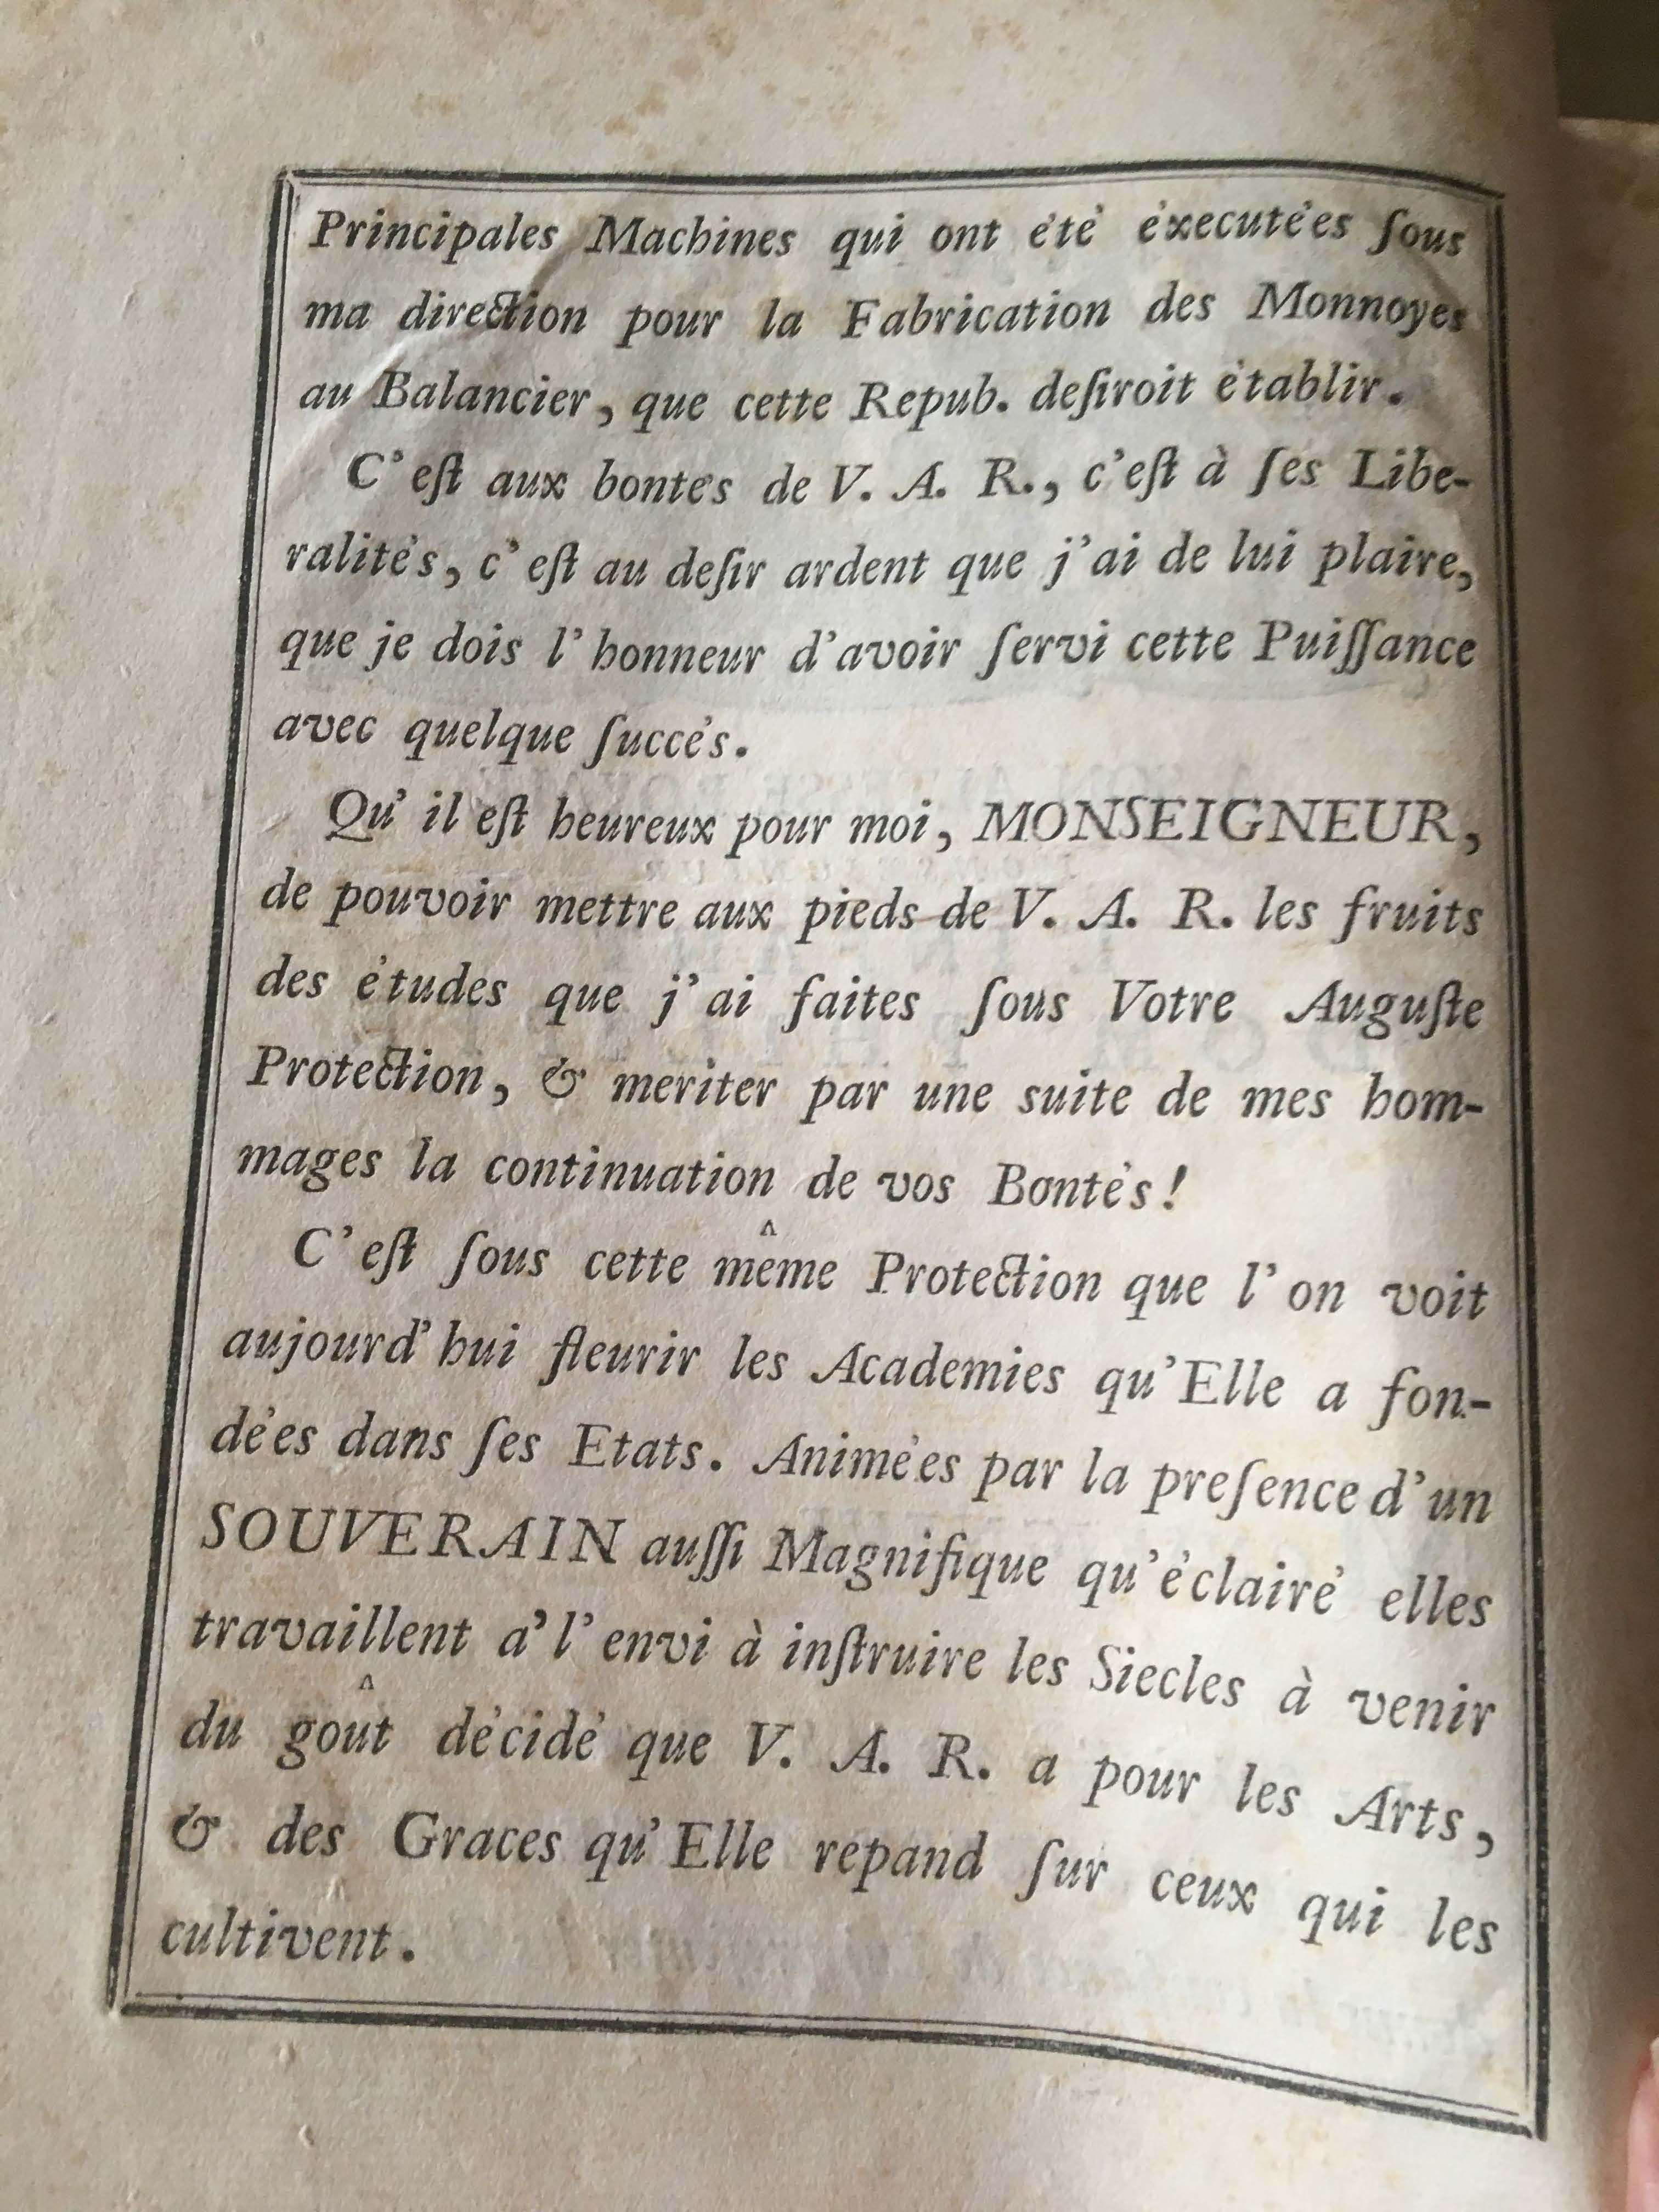 Principales Machines qui ont été éxecutées ſous
ma direction pour la Fabrication des Monnoyes
au Balancier, que cette Repub. deſiroit établir.
C'eſt aux bontés de V. A. R., c'eſt à ſes Libe-
ralités, c'eſt au deſir ardent que j'ai de lui plaire,
que je dois l'honneur d'avoir ſervi cette Puiſſance
avec quelque ſuccés.
Qu'il eſt heureux pour moi, MONSEIGNEUR,
de pouvoir mettre aux pieds de V. A. R. les fruits
des études que j'ai faites ſous Votre Auguſte
Protection, & meriter par une suite de mes hom-
mages la continuation de vos Bontés!
C'eſt ſous cette même Protection que l'on voit
aujourd'hui fleurir les Academies qu'Elle a fon-
dées dans ſes Etats. Animées par la preſence d'un
SOUVERAIN auſſi Magnifique qu'éclairé elles
travaillent a' l'envi à inſtruire les Siecles à venir
du goût décidé que V. A. R. a pour les Arts,
& des Graces qu'Elle repand ſur ceux qui les
cultivent.